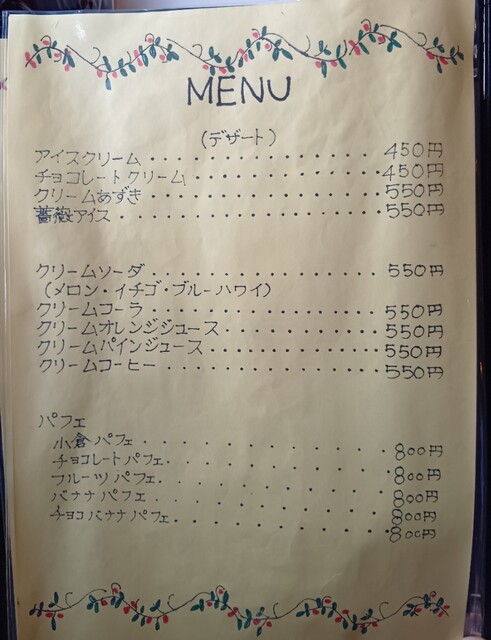 MENU
(デザート)
アイスクリーム・・・・・・・・・・・・・・450円
チョコレートクリーム・・・・・・・・・・・・450円
クリームあずき・・・・・・・・・・・・・・550円
薔薇アイス・・・・・・・・・・・・・・・・550円
クリームソーダ・・・・・・・・・・・・・・550円
(メロン・イチゴ・ブルーハワイ)
クリームコーラ・・・・・・・・・・・・・・550円
クリームオレンジジュース・・・・・・・・・・550円
クリームパインジュース・・・・・・・・・・・550円
クリームコーヒー・・・・・・・・・・・・・550円
パフェ
小倉パフェ・・・・・・・・・・・・800円
チョコレートパフェ・・・・・・・・・・800円
フルーツパフェ・・・・・・・・・・・800円
バナナパフェ・・・・・・・・・・・・800円
チョコバナナパフェ・・・・・・・・・・800円